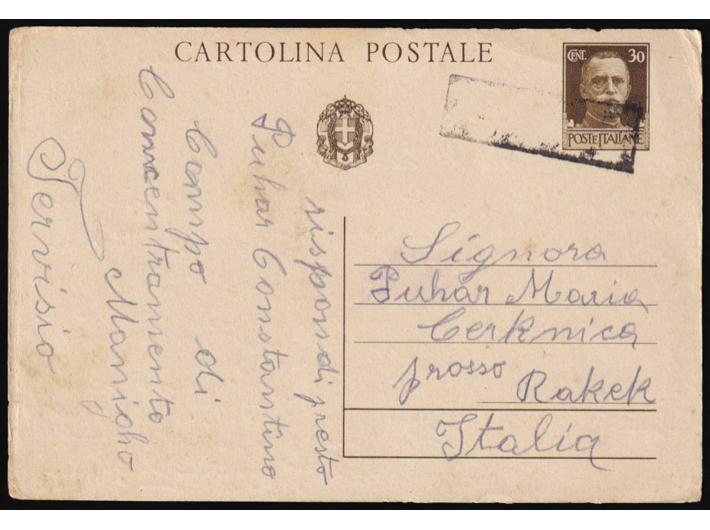 CARTOLINA POSTALE
CENT. 30
POSTE ITALIANE
rispondi presto
Puhar Constantino
Campo di
Concentramento
Manigho
Tervisio
Signora
Puhar Maria
Cerknica
prosso Rakek
Italia